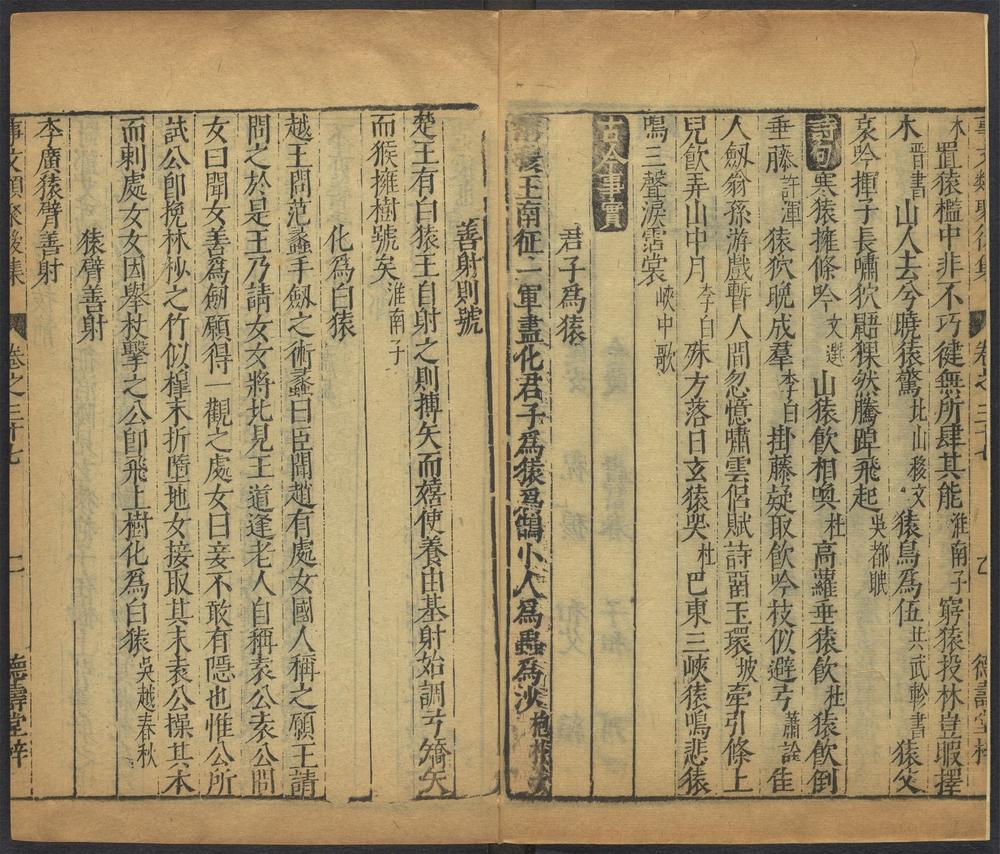 事文類聚後集 卷之三十七 乙 德壽堂梓
木 置猿檻中非不巧徤無所肆其能淮南子 窮猿投林豈暇擇
木晋書 山人去兮曉猿驚北山移文 猿鳥爲伍 猿父
哀吟揮子長嘯狖鼯猓然騰踔飛起吳都
詩句 寒猿擁條吟文選 山猿飲相喚杜 高蘿垂猿飲杜 猿飲倒
垂藤許渾 猿狖晚成羣李白 掛藤疑取飲吟枝似避弓蕭詮 隹
人劔翁孫游戲暫人間忽憶嘯雲侣賦詩畱玉環坡 牽引條上
兒飲弄山中月李白 殊方落日玄猿哭杜 巴東三峽猿鳴悲猿
鳴三聲淚霑裳峽中歌
古今事實
君子爲猿
王南征一軍盡化君子爲猿爲鶴小人爲蟲爲沙抱朴子
善射則號
楚王有白猿王自射之則搏矢而嬉使養由基射始調弓矯矢
而猴擁樹號矣淮南子
化爲白猿
越王問范蠡手劔之術蠡曰臣聞趙有處女國人稱之願王請
問之於是王乃請女女將北見王道逢老人自稱袁公袁公問
女曰聞女善爲劔願得一觀之處女曰妾不敢有隱也惟公所
試公卽挽林杪之竹似槹末折墮地女接取其末袁公操其本
而刺處女女因舉杖擊之公卽飛上樹化爲白猿吳越春秋
猿臂善射
李廣猿臂善射
事文類聚後集 卷之三十七 二 德壽堂梓